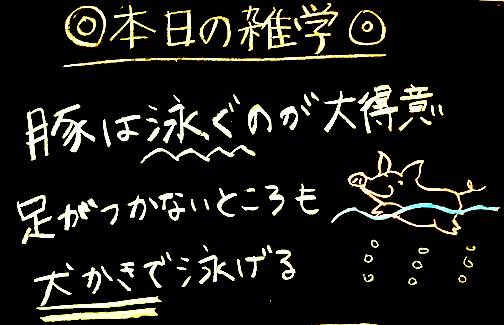 ◎本日の雑学◎
豚は泳ぐのが大得意
足がつかないところも
犬かきで泳げる